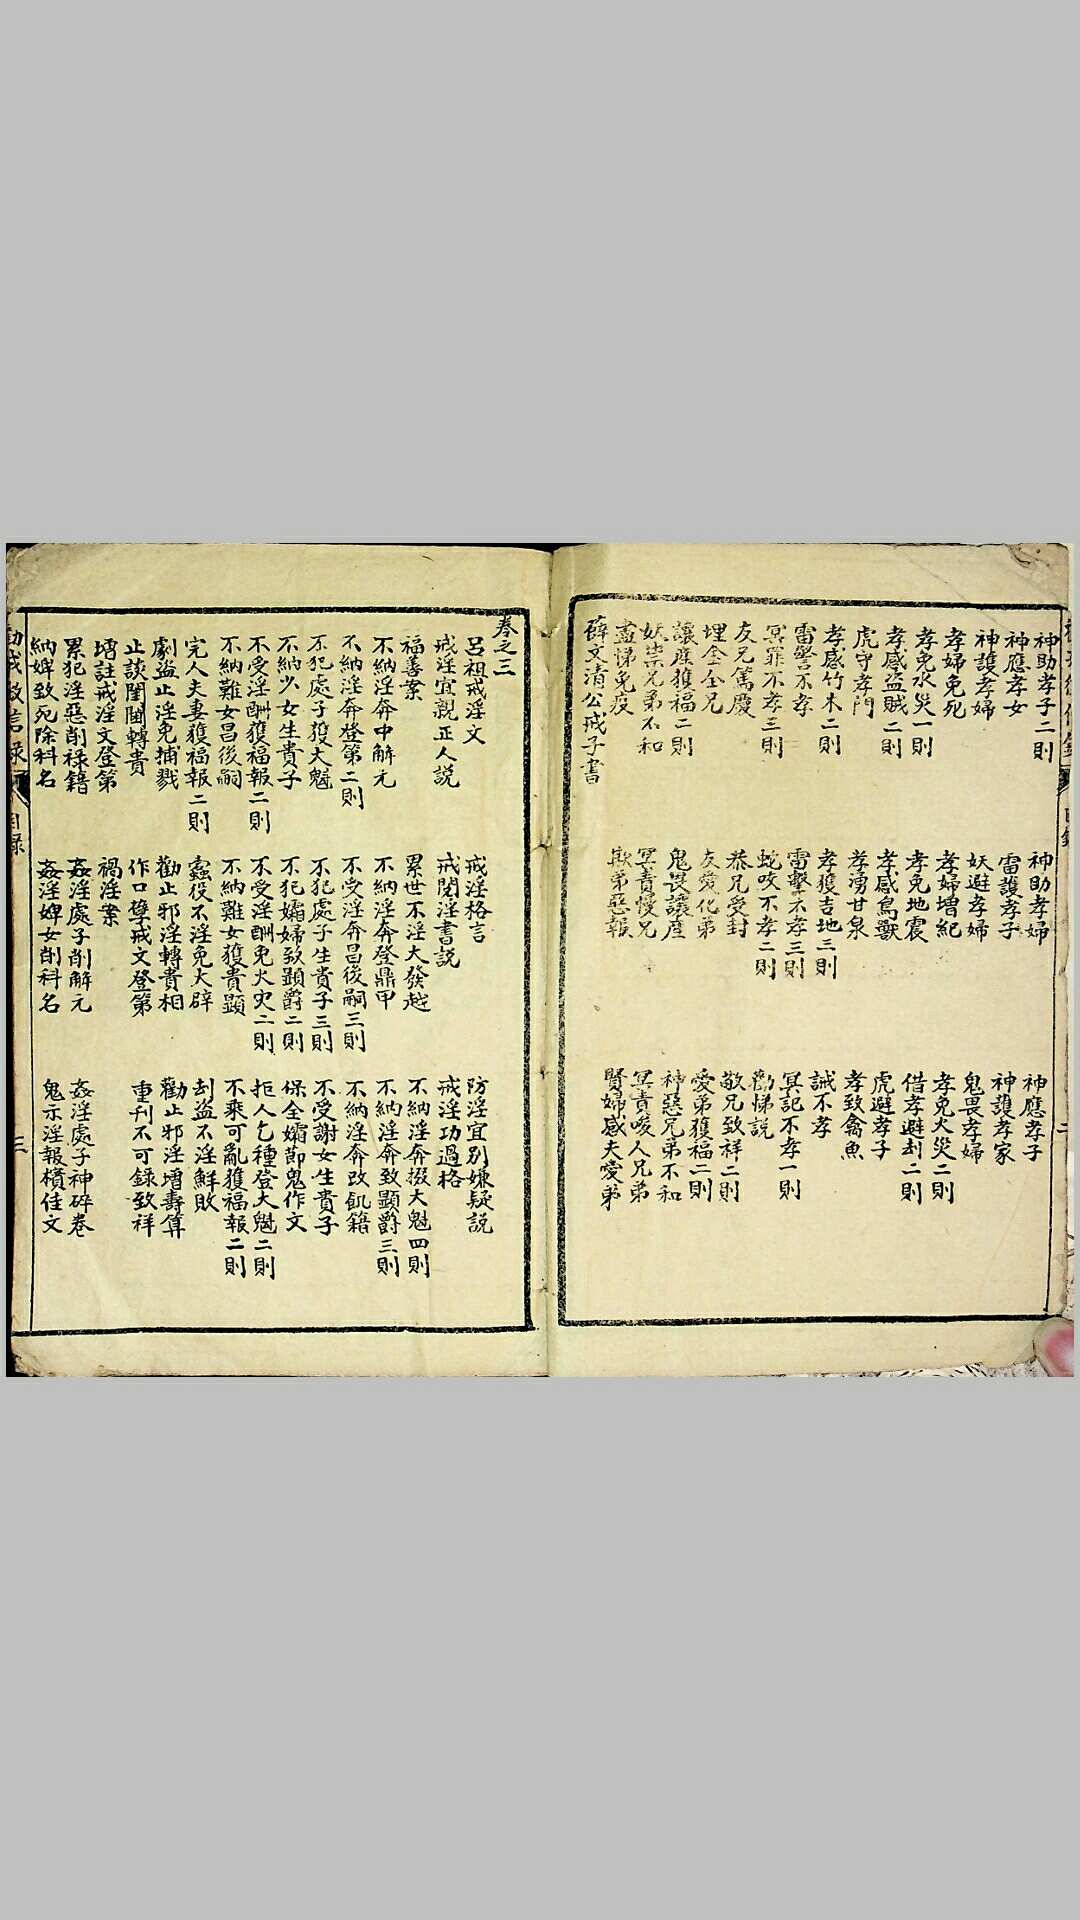 神助孝子二則 神助孝婦 神應孝子
神應孝女 雷護孝子 神護孝家
神護孝婦 妖避孝婦 鬼畏孝婦
孝婦免死 孝婦增紀 孝免火災二則
孝免水災一則 孝免地震 借孝避刦二則
孝感盜賊二則 孝感鳥獸 虎避孝子
虎守孝門 孝湧甘泉 孝致禽魚
孝感竹木二則 孝獲吉地三則 誡不孝
雷警不孝 雷擊不孝三則 冥記不孝一則
冥罪不孝三則 蛇咬不孝二則 勸悌説
友兄篤慶 恭兄受封 敬兄致祥二則
埋金全兄 友愛化弟 愛弟獲福二則
讓產獲福二則 鬼畏讓產 神惡兄弟不和
妖祟兄弟不和 冥責慢兄 冥責唆人兄弟
盡悌免疫 欺弟惡報 賢婦感夫愛弟
薛文清公戒子書
卷之三
呂祖戒淫文 戒淫格言 防淫宜別嫌疑説
戒淫宜親正人説 戒閱淫書説 戒淫功過格
福善案 累世不淫大發越 不納淫奔掇大魁四則
不納淫奔中解元 不納淫奔登鼎甲 不納淫奔致顯爵三則
不納淫奔登第二則 不受淫奔昌後嗣三則 不納淫奔改飢籍
不犯處子獲大魁 不犯處子生貴子三則 不受謝女生貴子
不納少女生貴子 不犯孀婦致顯爵二則 保全孀節鬼作文
不受淫酬獲福報二則 不受淫酬免火灾二則 拒人乞種登大魁二則
不納難女昌後嗣 不納難女獲貴顯 不乘可亂獲福報二則
完人夫妻獲福報二則 蠹役不淫免大辟 刦盜不淫鮮敗
劇盜止淫免捕戮 勸止邪淫轉貴相 勸止邪淫增壽算
止談閨閫轉貴 作口孽戒文登第 重刊不可錄致祥
增註戒淫文登第 禍淫案
累犯淫惡削祿籍 姦淫處子削解元 姦淫處子神碎卷
納婢致死除科名 姦淫婢女削科名 鬼示淫報檟佳文
勸戒徵信錄 目錄 三